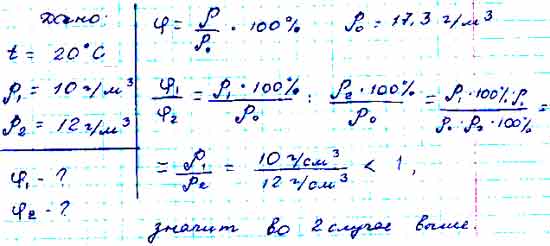 Дано:
t = 20°C
ρ₁ = 10 г/м³
ρ₂ = 12 г/м³
φ₁ - ?
φ₂ - ?
φ = ρ/ρ₀ · 100% ρ₀ = 17,3 г/м³
φ₁/φ₂ = ρ₁ · 100%/ρ₀ : ρ₂ · 100%/ρ₀ = ρ₁ · 100% · ρ₀/ρ₀ · ρ₂ · 100% =
= ρ₁/ρ₂ = 10 г/см³/12 г/см³ < 1,
значит во 2 случае выше.